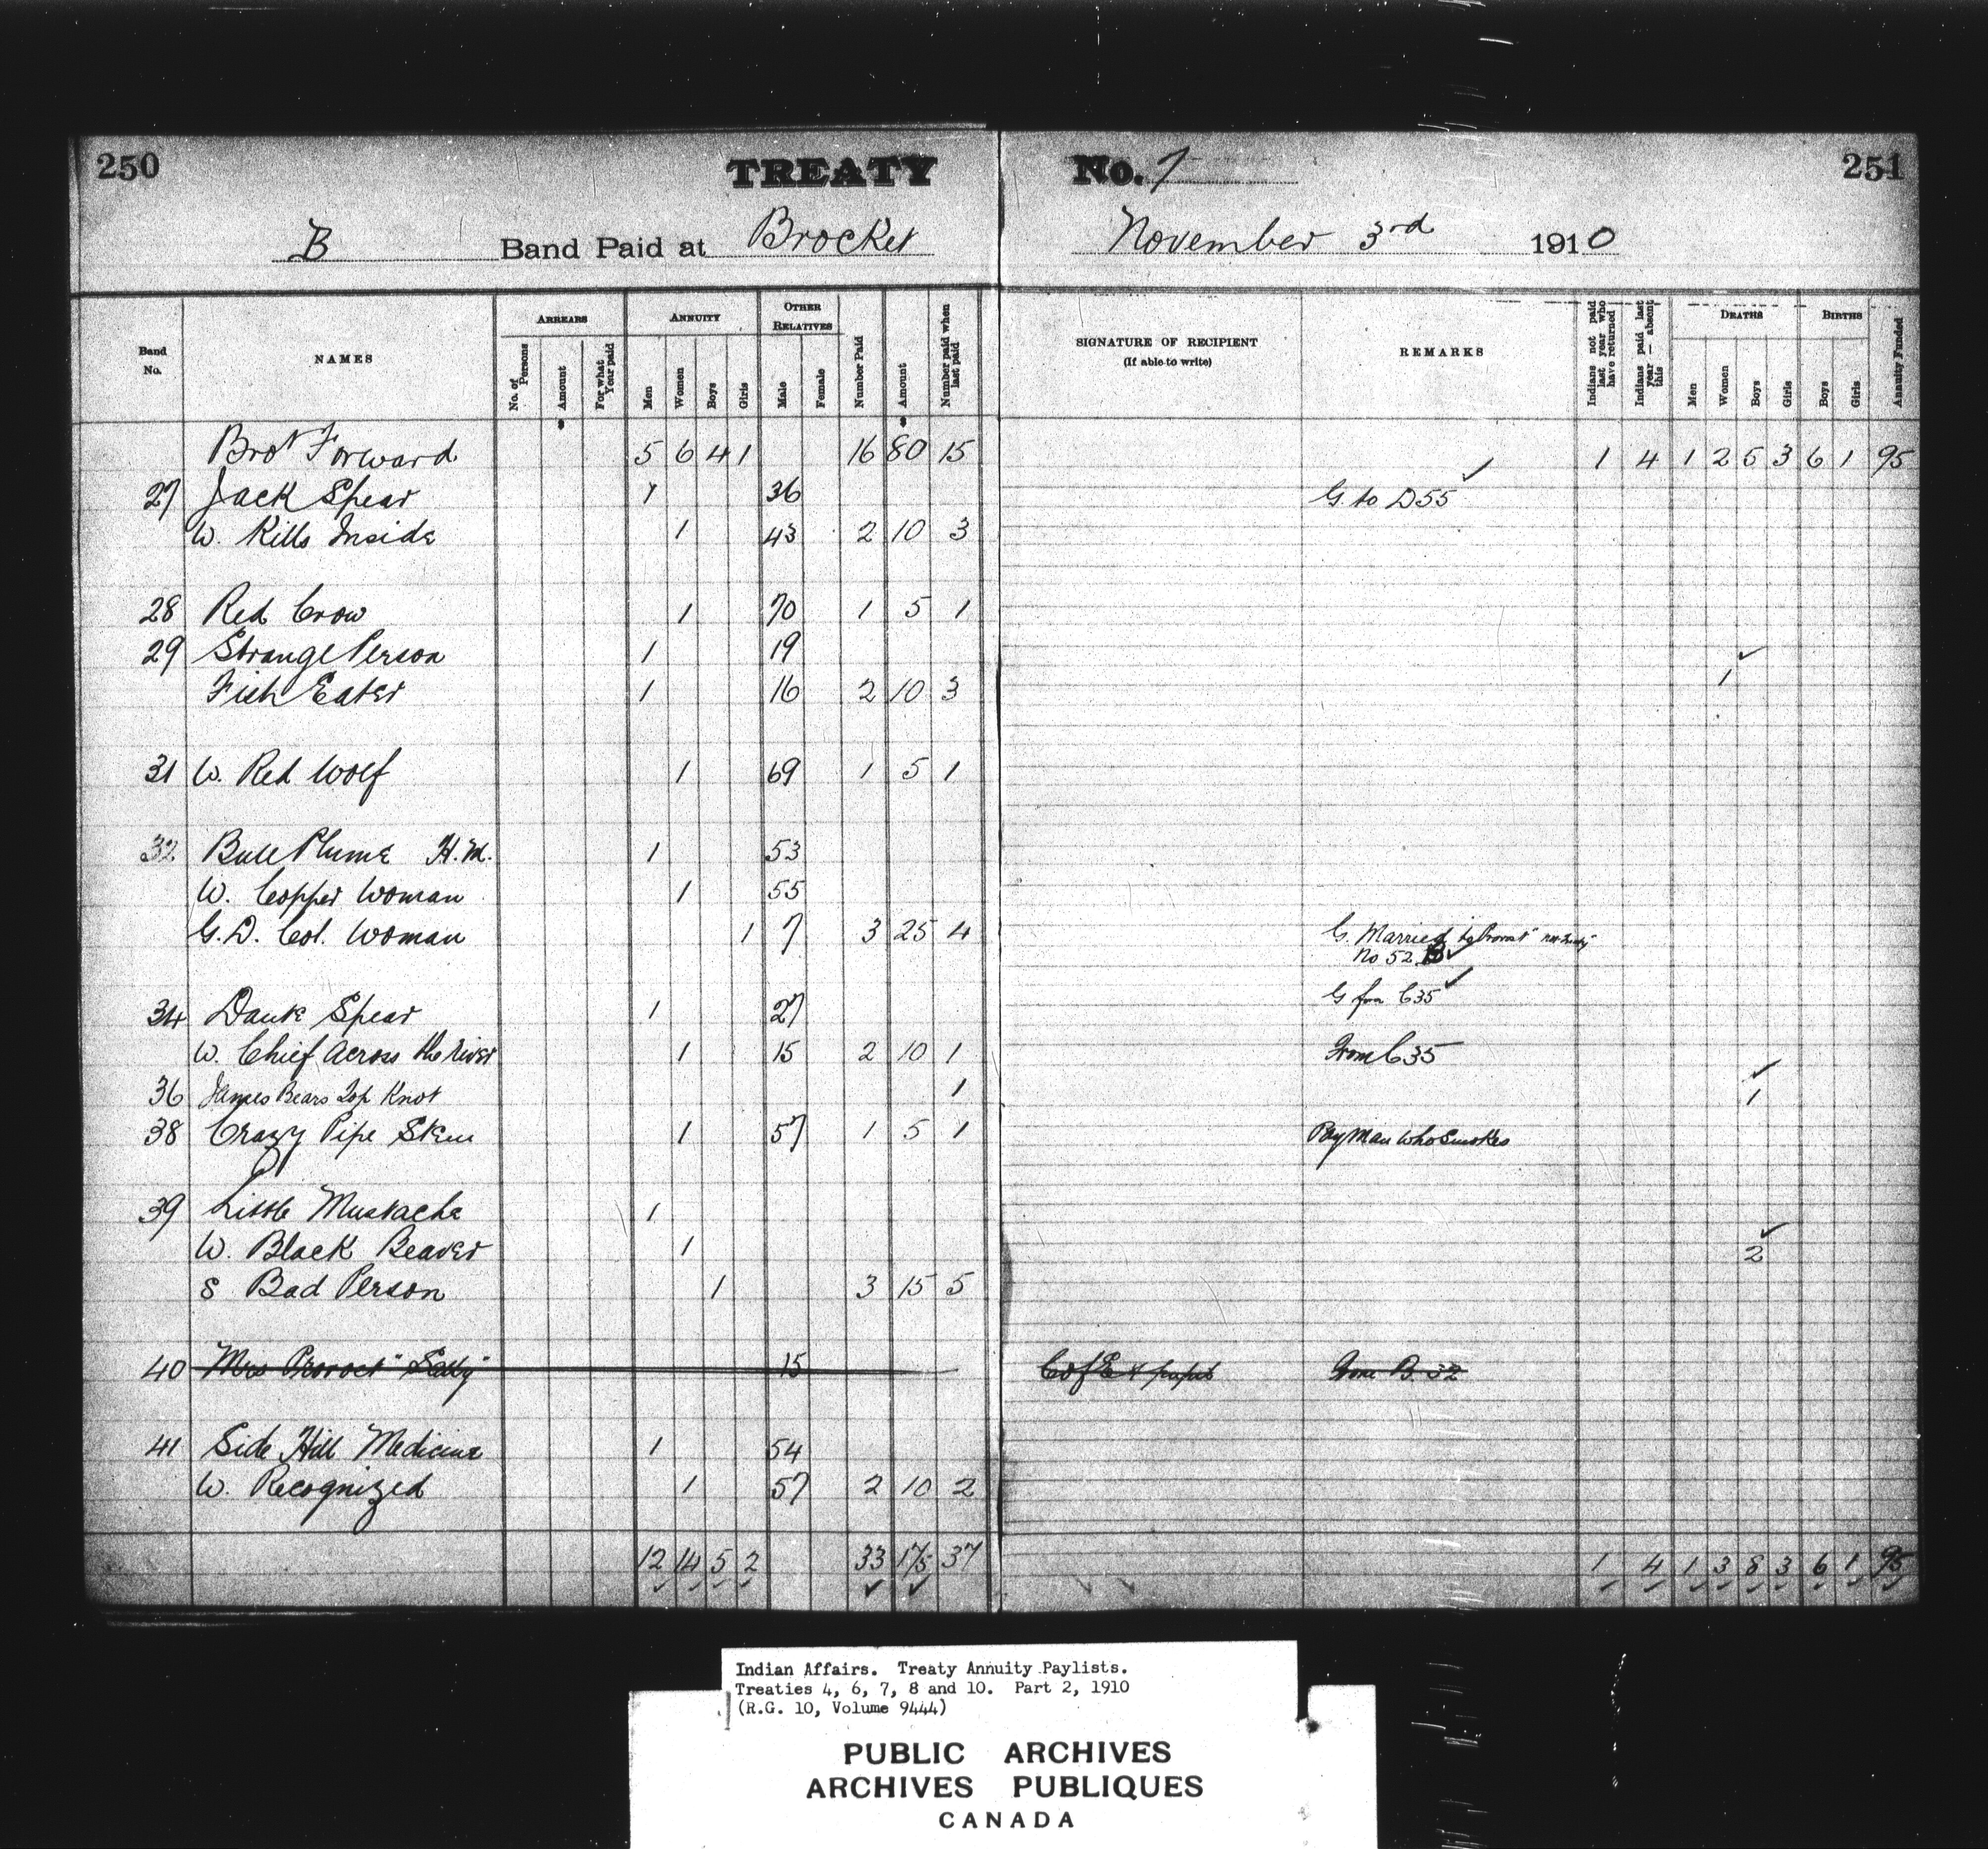 250 TREATY No. 7 251
B Band Paid at Brocket November 3rd 1910
Band No. NAMES ARREARS No. of Persons Amount For what Year paid ANNUITY Men Women Boys Girls OTHER RELATIVES Male Female Number Paid Amount Number paid when last paid SIGNATURE OF RECIPIENT (If able to write) REMARKS Indians not paid last year who have returned Indians paid last year — absent this DEATHS Men Women Boys Girls BIRTHS Boys Girls Annuity Funded
Brot Forward 5 6 4 1 16 80 15 1 4 1 2 5 3 6 1 95
27 Jack Spear 1 36 G. to D55 ✓
W. Kills Inside 1 43 2 10 3
28 Red Crow 1 70 1 5 1
29 Strange Person 1 19 ✓
Fish Eater 1 16 2 10 3 1
31 W. Red Wolf 1 69 1 5 1
32 Bull Plume H.M. 1 53
W. Copper Woman 1 55
G.D. Col. Woman 1 7 3 25 4 G. Married
No 52 B ✓
34 Dauk Spear 1 27 G from C35 ✓
W. Chief Across the River 1 15 2 10 1 From C35
36 James Bears Top Knot 1 1 ✓
38 Crazy Pipe Stem 1 57 1 5 1 Pay Man Who Smokes
39 Little Mustache 1
W. Black Beaver 1 2 ✓
S Bad Person 1 3 15 5
40 Mrs Provost "Sally" 15 C of E papers From B. 32
41 Side Hill Medicine 1 54
W. Recognized 1 57 2 10 2
12 14 5 2 33 175 37 1 4 1 3 8 3 6 1 95
Indian Affairs. Treaty Annuity Paylists.
Treaties 4, 6, 7, 8 and 10. Part 2, 1910
(R.G. 10, Volume 9444)
PUBLIC ARCHIVES
ARCHIVES PUBLIQUES
CANADA